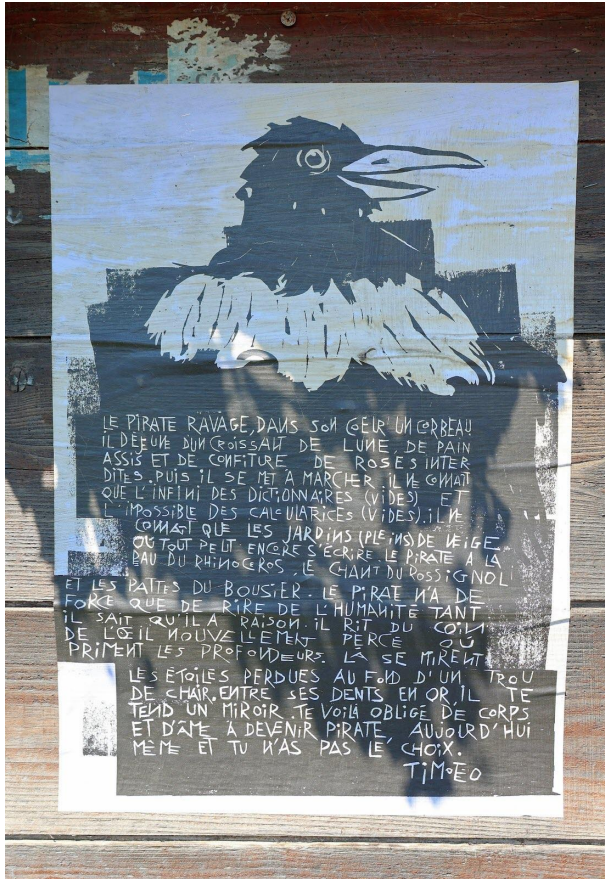 LE PIRATE RAVAGE, DANS SON CŒUR UN CORBEAU
IL DÉJEUNE D'UN CROISSANT DE LUNE, DE PAIN
ASSIS ET DE CONFITURE DE ROSES INTER
DITES. PUIS IL SE MET À MARCHER. IL NE CONNAIT
QUE L'INFINI DES DICTIONNAIRES (VIDES) ET
L'IMPOSSIBLE DES CALCULATRICES (VIDES). IL NE
CONNAIT QUE LES JARDINS (PLEINS) DE NEIGE
OÙ TOUT PEUT ENCORE S'ÉCRIRE. LE PIRATE A LA
PEAU DU RHINOCEROS, LE CHANT DU ROSSIGNOL
ET LES PATTES DU BOUSIER. LE PIRATE N'A DE
FORCE QUE DE RIRE DE L'HUMANITÉ TANT
IL SAIT QU'IL A RAISON. IL RIT DU COIN
DE L'ŒIL NOUVELLEMENT PERCÉ OÙ
PRIMENT LES PROFONDEURS. LÀ SE MIRENT
LES ÉTOILES PERDUES AU FOND D'UN TROU
DE CHAIR. ENTRE SES DENTS EN OR IL TE
TEND UN MIROIR. TE VOILÀ OBLIGÉ DE CORPS
ET D'ÂME À DEVENIR PIRATE, AUJOURD'HUI
MÊME ET TU N'AS PAS LE CHOIX.
TIMOEO